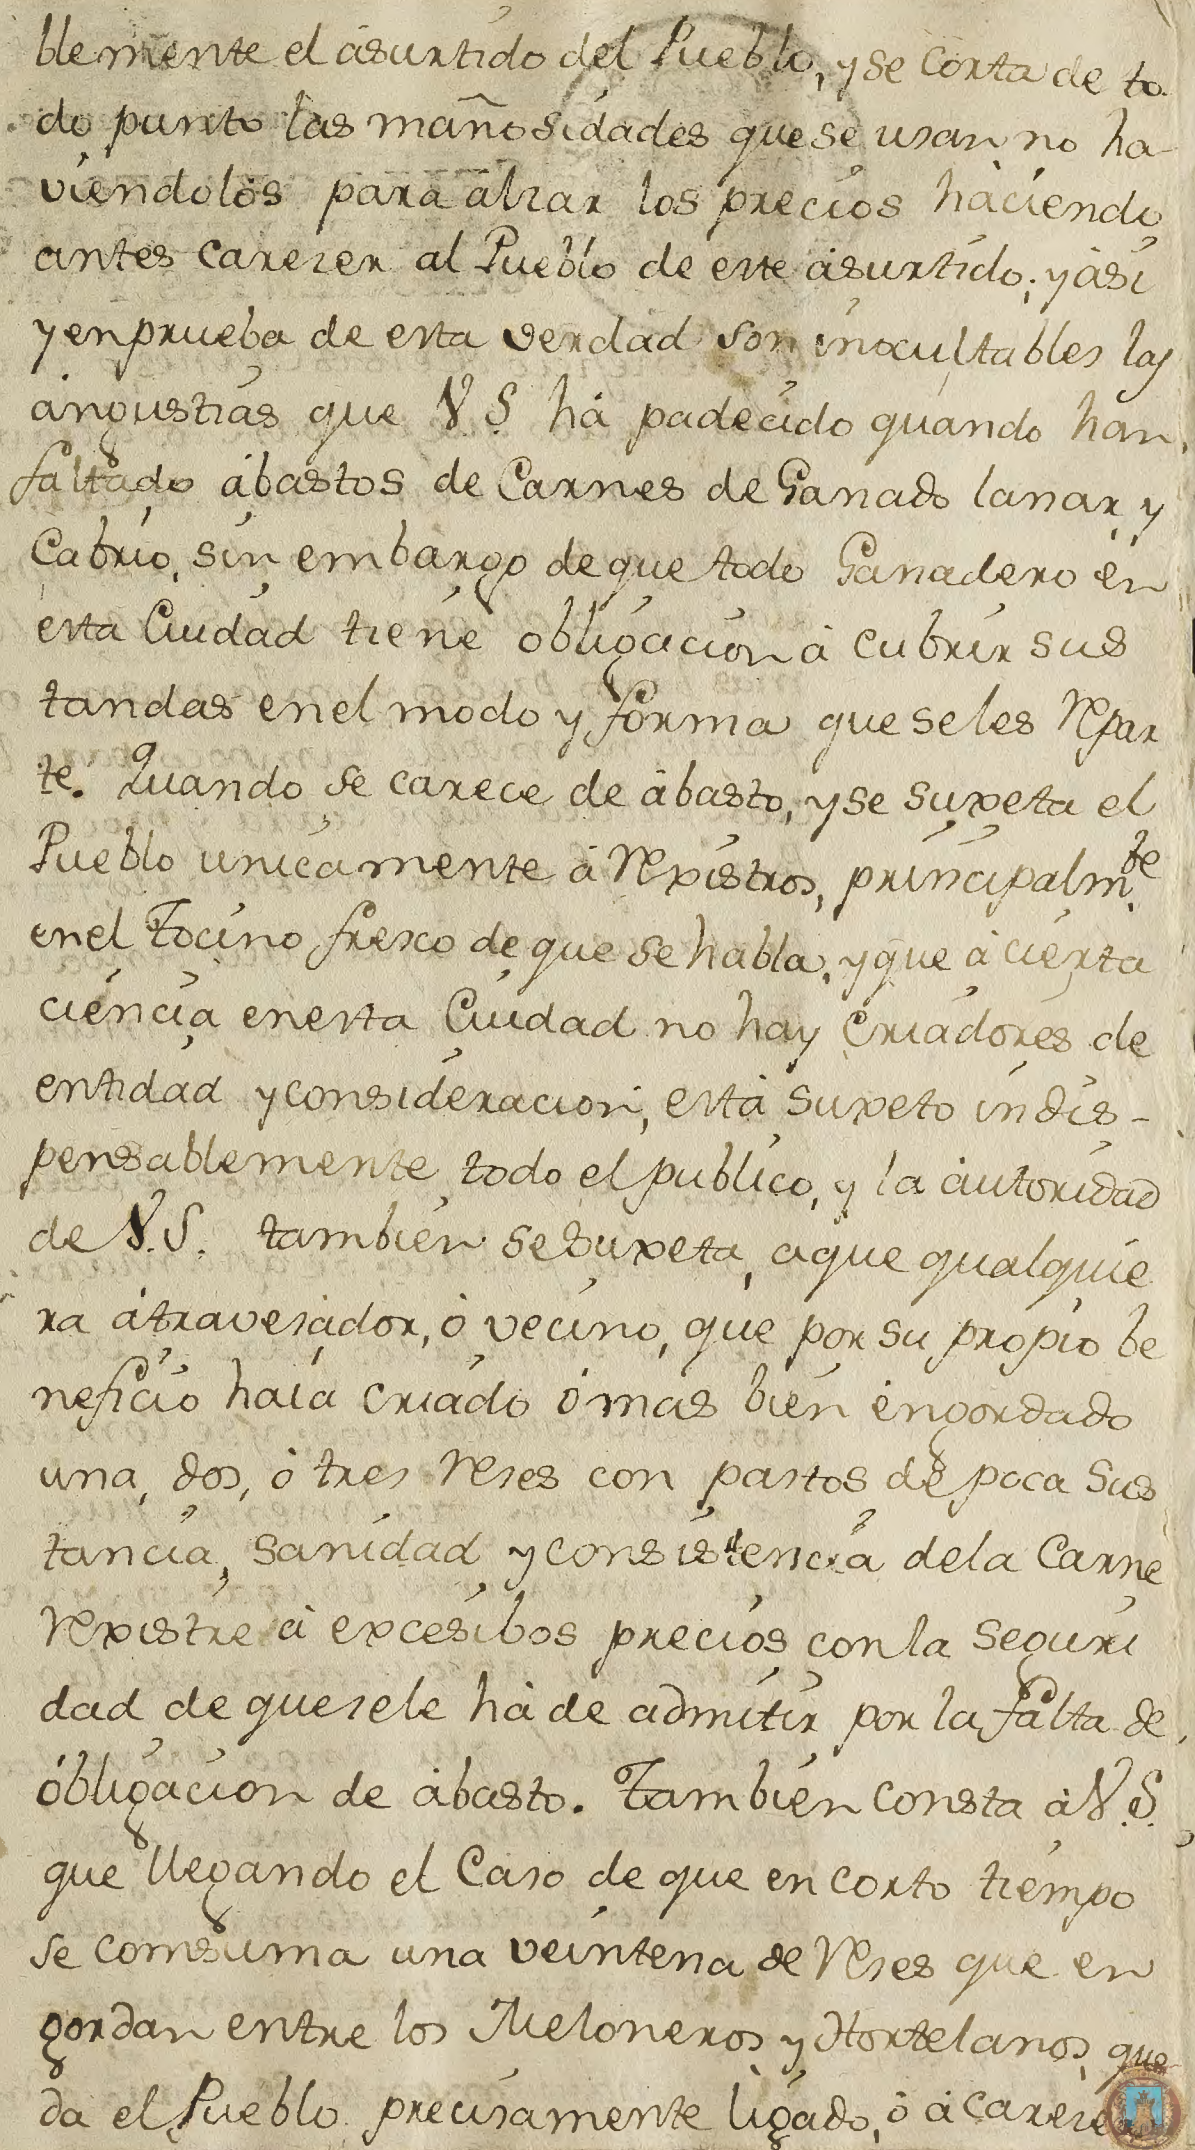 blemente el ásurtido del Pueblo, y se Corta de to-
do punto las mañosidades que se usan no ha-
viendolos para álzar los precios haciendo
antes Carezer al Pueblo de este ásurtido; y ási
y en prueba de esta verdad son inocultables las
ángustias que V S há padecido quando han
faltado ábastos de Carnes de Ganado lanar, y
Cabrio, sin embargo de que todo Ganadero en
esta Ciudad tiene obligacion á cubrir sus
tandas en el modo y forma que se les Repar
te. Quando se carece de ábasto, y se suxeta el
Pueblo unicamente á Rexistros, principalmte
en el Tocino fresco de que se habla, y que á cierta
ciencia en esta Ciudad no hay Criadores de
entidad y consideracion, está suxeto indis-
pensablemente todo el publico, y la autoridad
de V.S. tambien se suxeta, a que qualquie
ra átravesador, ó vecino, que por su propio be
neficio haia criado ó mas bien éngordado
una, dos, ó tres Reses con pastos de poca sus
tancia, sanidad y consistencia de la Carne
Rexistre á excesibos precios con la seguri
dad de que se le há de admitir por la falta de
óbligacion de ábasto. Tambien consta á V.S.
que llegando el Caso de que en corto tiempo
se comsuma una veintena de Reses que en
gordan entre los Meloneros y Hortelanos, que
da el Pueblo precisamente ligado, ó á carezer